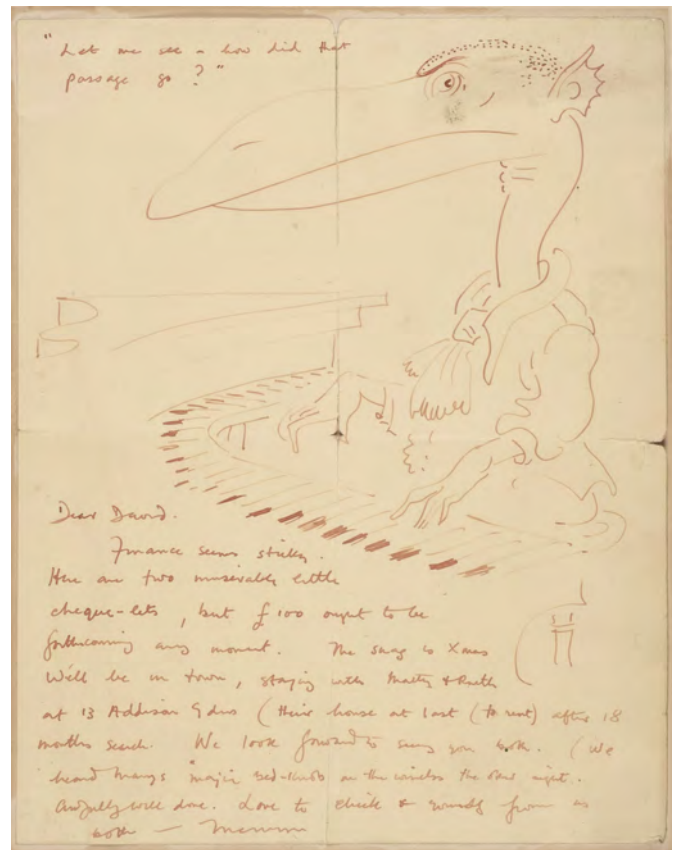 "Let me see - how did that
passage go ?"
Dear David.
Finance seems sticky.
Here are two miserable little
cheque-lets, but £100 ought to be
forthcoming any moment. The snag is Xmas
We'll be in town, staying with &
at 13 Addison Gdns (their house at last (to rent) after 18
months search. We look forward to seeing you both. (We
heard Mary's magic bed-knob on the wireless the other night.
Awfully well done. Love to & from us
both —